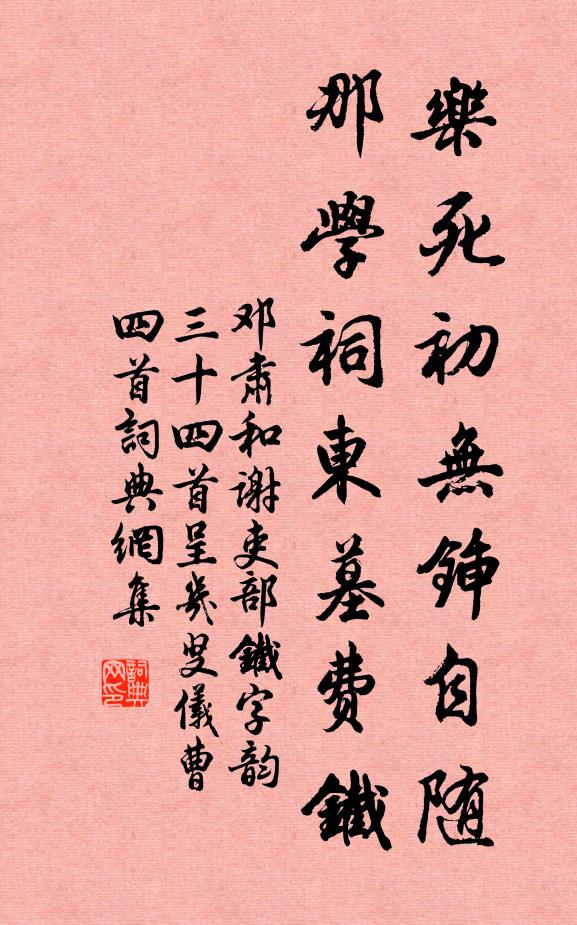 樂死初無鍤自随
那學祠東墓費鐵
邓肅和謝吏部鐵字韵
三十四首呈幾叟儀曹
四首詞典網集
詞典
网印